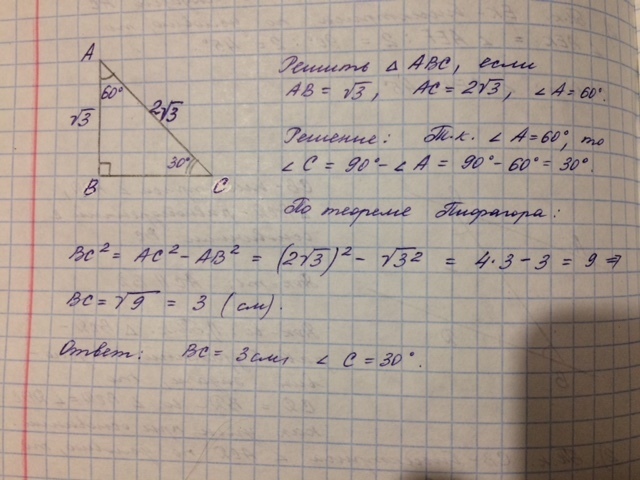 A
60°
√3
2√3
30°
B
C
Решить △ ABC, если
AB = √3, AC = 2√3, ∠A = 60°.
Решение: Т.к. ∠A = 60°, то
∠C = 90° - ∠A = 90° - 60° = 30°.
По теореме Пифагора:
BC² = AC² - AB² = (2√3)² - √3² = 4·3 - 3 = 9 ⇒
BC = √9 = 3 (см).
Ответ: BC = 3 см, ∠C = 30°.